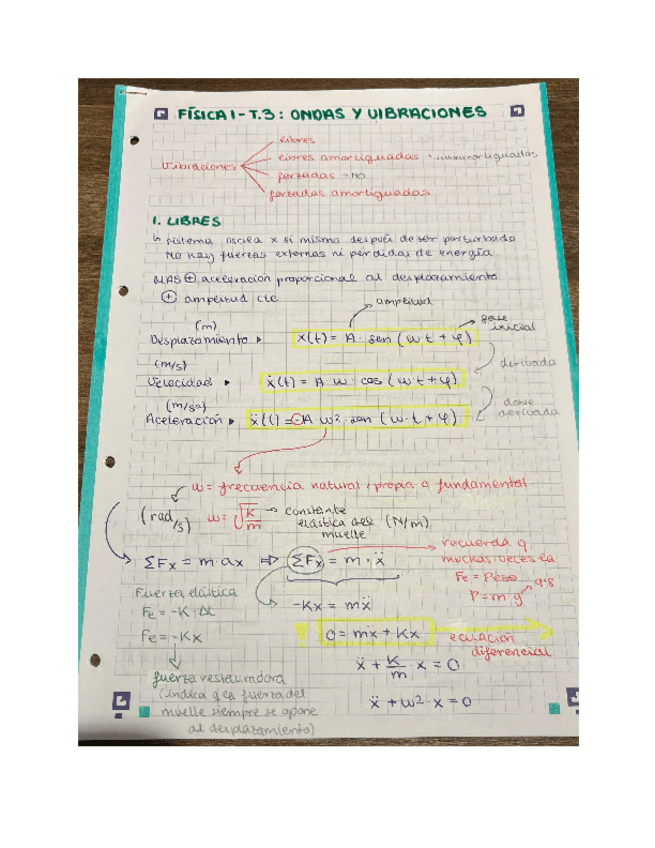 FÍSICA I - T.3: ONDAS Y VIBRACIONES
Vibraciones
libres
libres amortiguadas
forzadas → NO
forzadas amortiguadas
1. LIBRES
↳ sistema oscila x sí mismo después de ser perturbado
NO hay fuerzas externas ni pérdidas de energía
MAS ⊕ aceleración proporcional al desplazamiento
⊕ amplitud cte
→ amplitud
(m)
Desplazamiento ▸ x(t) = A · sen (w t + φ)
→ fase inicial
derivada
(m/s)
Velocidad ▸ ẋ(t) = A w · cos (w t + φ)
doble derivada
(m/s²)
Aceleración ▸ ẍ(t) = -A w² · sen (w · t + φ)
w = frecuencia natural, propia o fundamental
(rad/s) w = √(K/m) → constante elástica del muelle (N/m)
ΣFx = m · ax ⇒ ΣFx = m · ẍ
recuerda q
muchas veces la
Fe = Peso
P = m · g 9'8
Fuerza elástica
Fe = -K · Δl
-Kx = mẍ
Fe = -Kx
0 = mẍ + Kx
ecuación diferencial
ẍ + K/m · x = 0
fuerza restauradora
(indica q es fuerza del
muelle siempre se opone
al desplazamiento)
ẍ + w² · x = 0